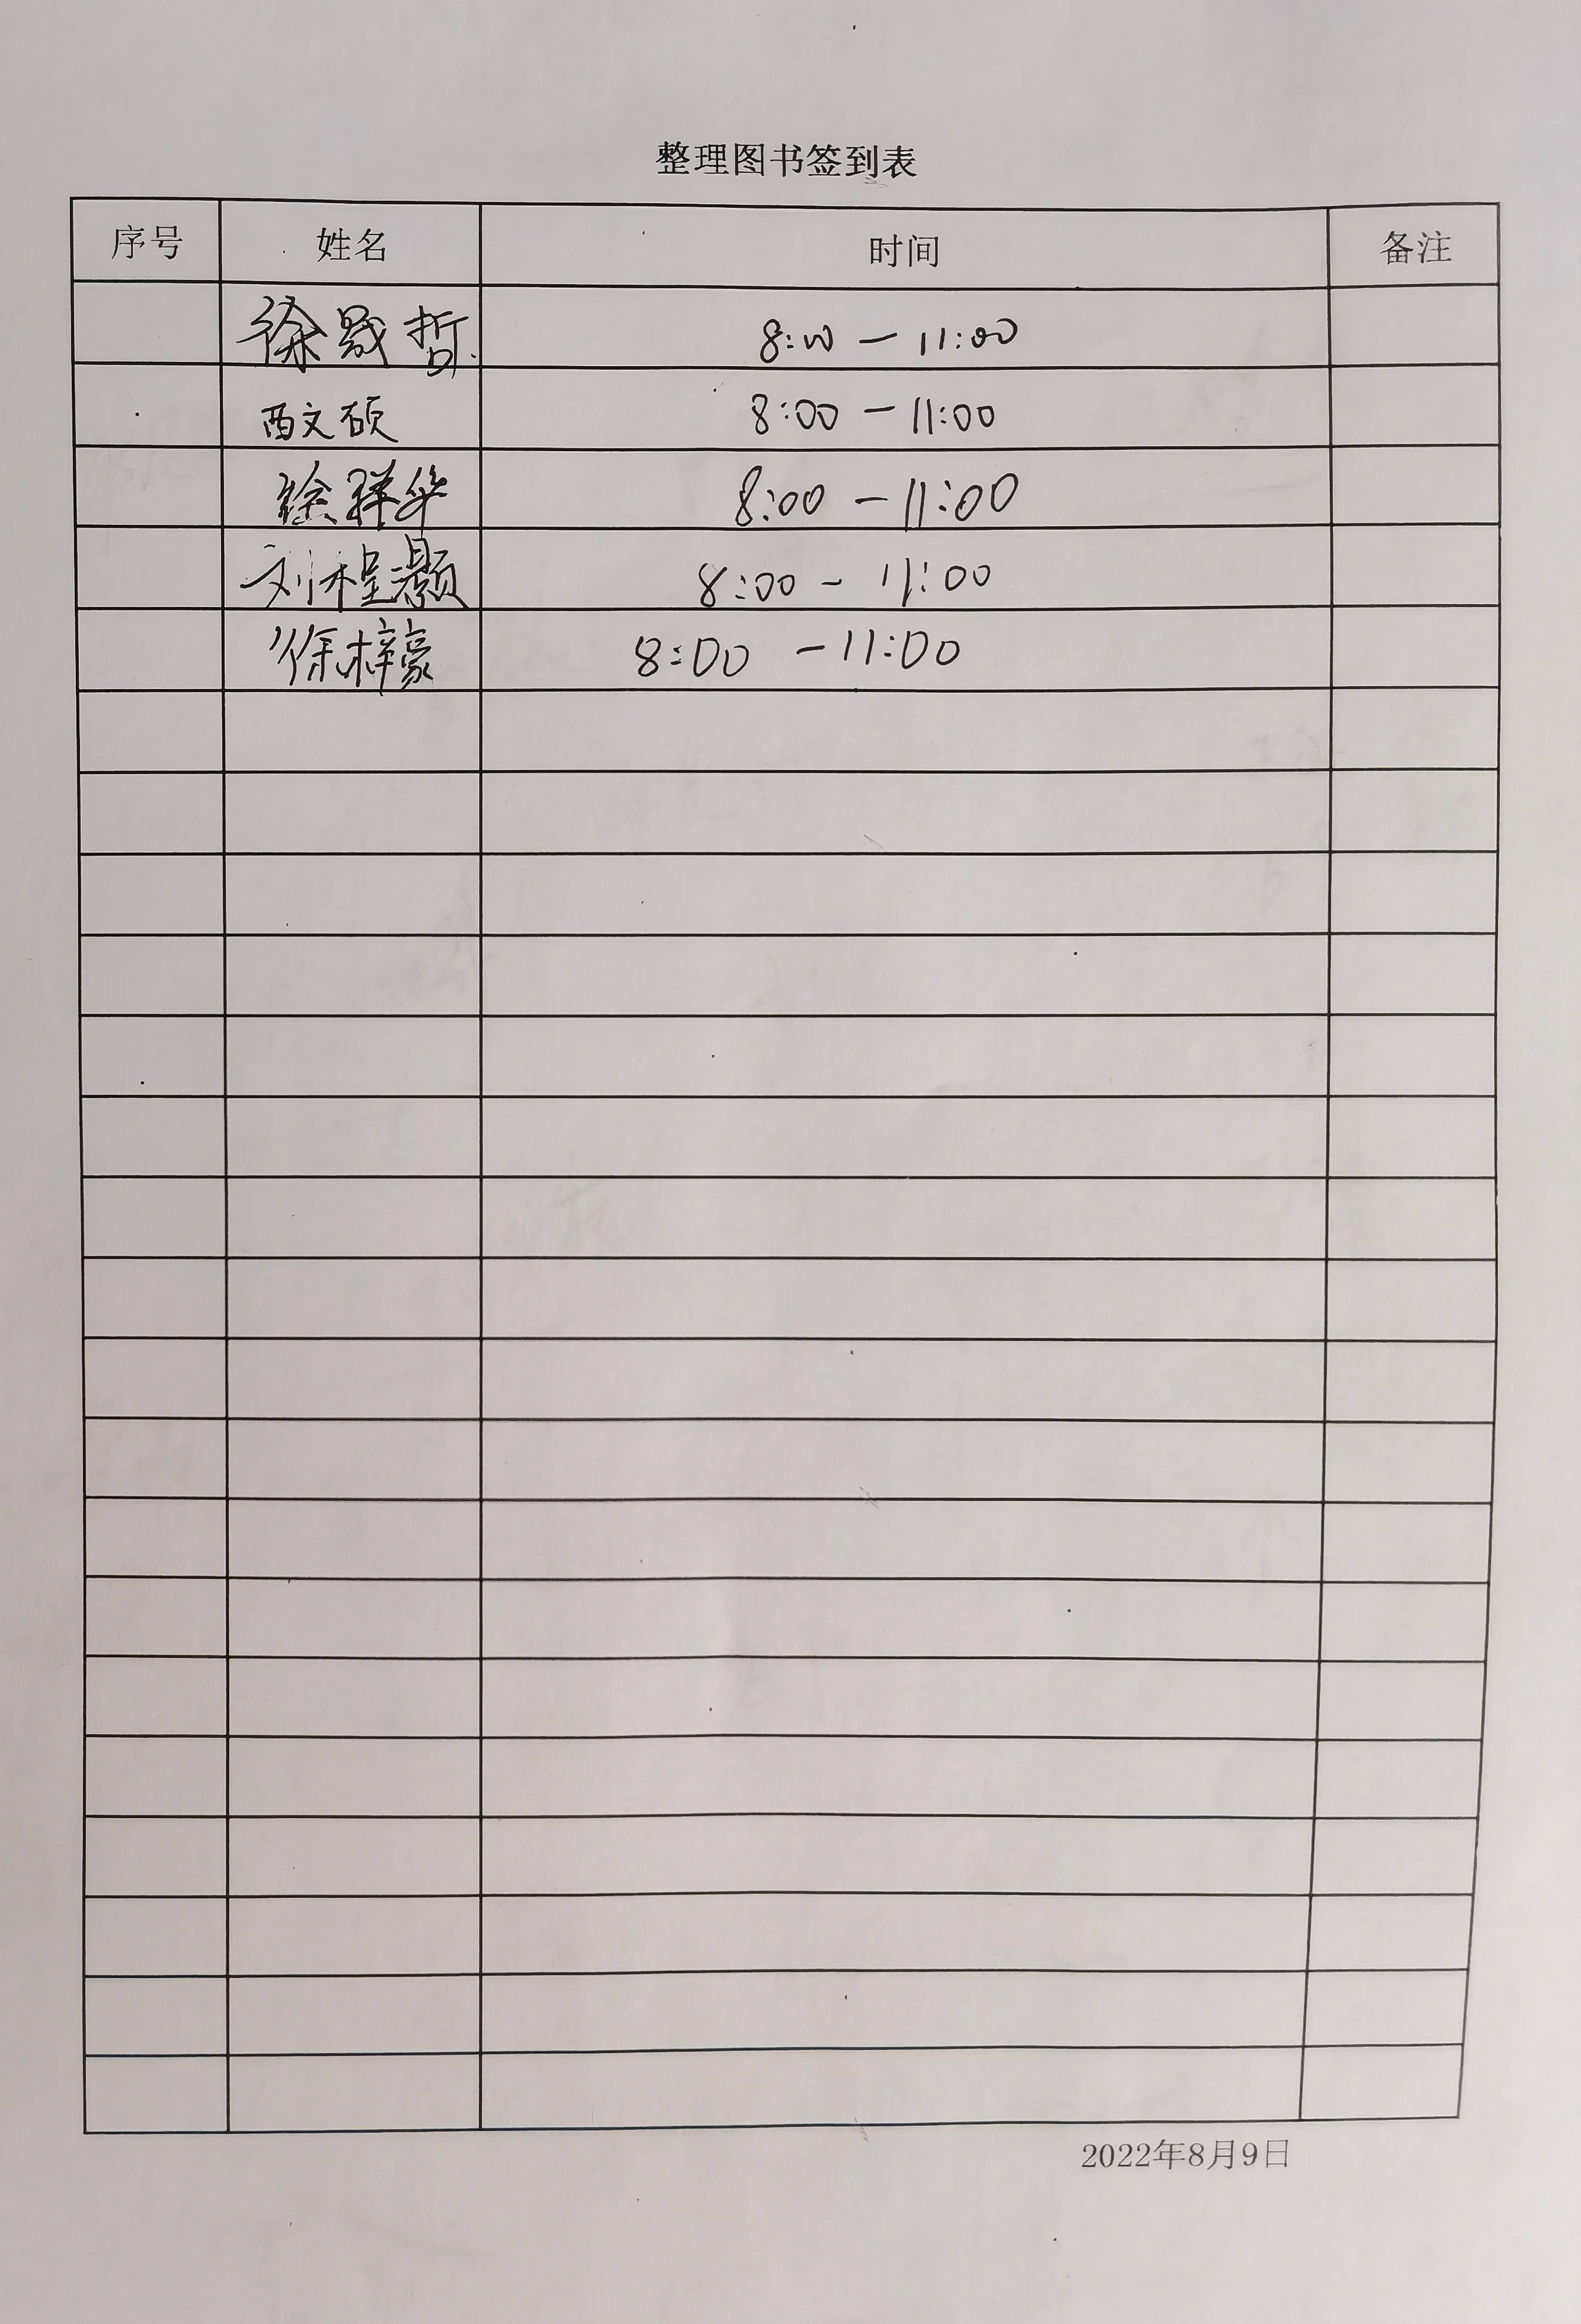 整理图书签到表
序号 姓名 时间 备注
徐晟哲 8:00 — 11:00
西文硕 8:00 — 11:00
徐祥华 8:00 — 11:00
刘程灏 8:00 - 11:00
徐梓豪 8:00 - 11:00
2022年8月9日